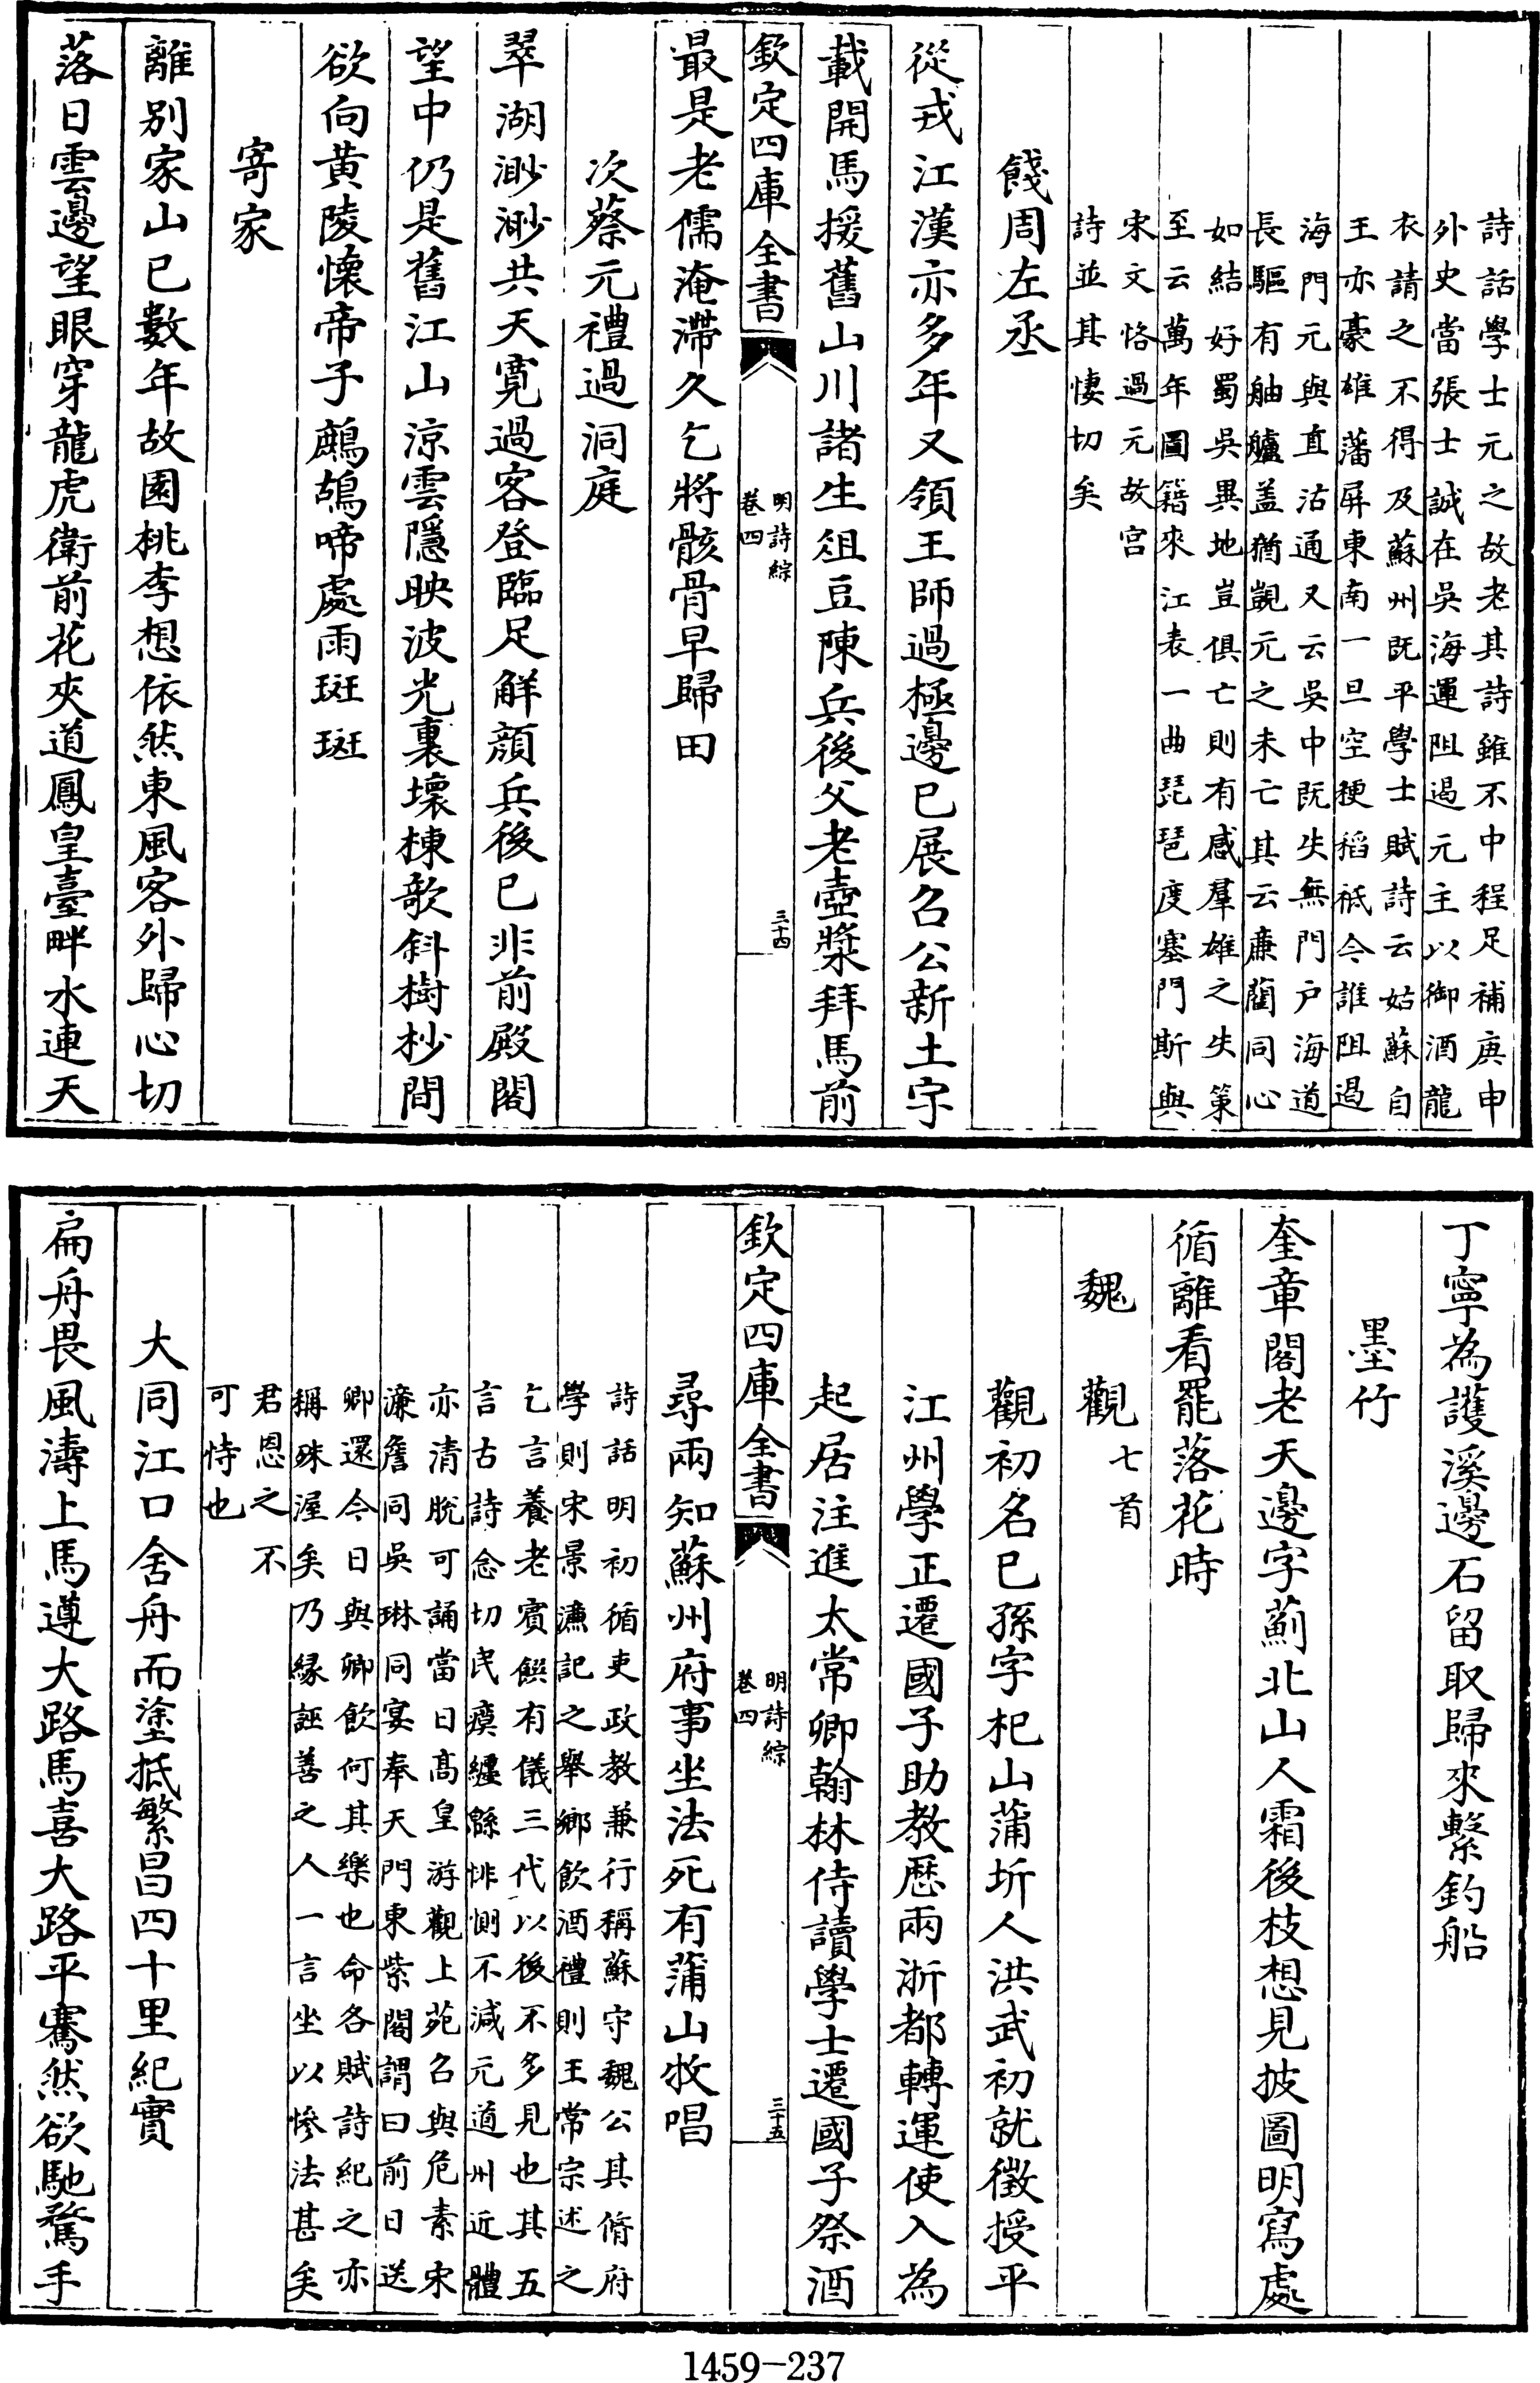 詩話學士元之故老其詩雖不中程足補庚申
外史當張士誠在吳海運阻遏元主以御酒龍
衣請之不得及蘇州既平學士賦詩云姑蘇自
王亦豪雄藩屏東南一旦空稉稻祗今誰阻遏
海門元與直沽通又云吳中既失無門户海道
長驅有舳艫盖猶覬元之未亡其云亷藺同心
如結好蜀吳異地豈俱亡則有感羣雄之失策
至云萬年圖籍來江表一曲琵琶度塞門斯與
宋文恪過元故宫
詩並其悽切矣
餞周左丞
從戎江漢亦多年又領王師過極邊已展召公新土宇
載開馬援舊山川諸生俎豆陳兵後父老壺漿拜馬前
欽定四庫全書
明詩綜
卷四
三十四
最是老儒淹滯久乞將骸骨早歸田
次蔡元禮過洞庭
翠湖渺渺共天寛過客登臨足解顔兵後已非前殿閣
望中仍是舊江山凉雲隱映波光裏壞棟欹斜樹杪間
欲向黄陵懷帝子鷓鴣啼處雨斑斑
寄家
離别家山已數年故園桃李想依然東風客外歸心切
落日雲邊望眼穿龍虎衛前花夾道鳳皇臺畔水連天
丁寧為護溪邊石留取歸來繫釣船
墨竹
奎章閣老天邊字薊北山人霜後枝想見披圖明寫處
循離看罷落花時
魏觀七首
觀初名已孫字杞山蒲圻人洪武初就徵授平
江州學正遷國子助教歴兩浙都轉運使入為
起居注進太常卿翰林侍讀學士遷國子祭酒
欽定四庫全書
明詩綜
卷四
三十五
尋兩知蘇州府事坐法死有蒲山牧唱
詩話明初循吏政教兼行稱蘇守魏公其脩府
學則宋景濂記之舉鄉飲酒禮則王常宗述之
乞言養老賓饌有儀三代以後不多見也其五
言古詩念切民瘼纒緜悱惻不減元道州近體
亦清脫可誦當日高皇游觀上苑召與危素宋
濂詹同吳琳同宴奉天門東紫閣謂曰前日送
卿還今日與卿飲何其樂也命各賦詩紀之亦
稱殊渥矣乃緣誣善之人一言坐以慘法甚矣
君恩之不
可恃也
大同江口舍舟而塗抵繁昌四十里紀實
扁舟畏風濤上馬遵大路馬喜大路平騫然欲馳騖手
1459-237